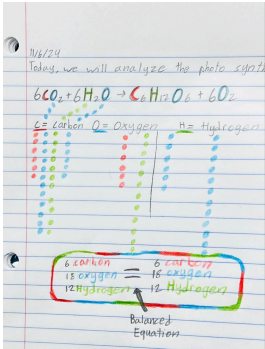 11/6/24
Today, we will analyze the photo synt
6CO2 + 6H2O → C6H12O6 + 6O2
C = Carbon O = Oxygen H = Hydrogen
6 carbon = 6 carbon
18 oxygen 18 oxygen
12 Hydrogen 12 Hydrogen
Balanced
Equation